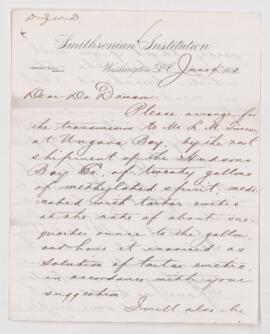 D. J. W. D.
Smithsonian Institution
Washington, D.C. June 1882
Dear Dr. Dawson:
Please arrange for
the transmission to Mr. L. M. Turner,
at Ungava Bay, by the next
shipment of the Hudsons
Bay Co., of twenty gallons
of methylated spirit, medi-
cated with tartar emetic
at the rate of about one-
quarter ounce to the gallon,
and have it invoiced as
solution of tartar emetic,
in accordance with your
suggestion.
I will also be